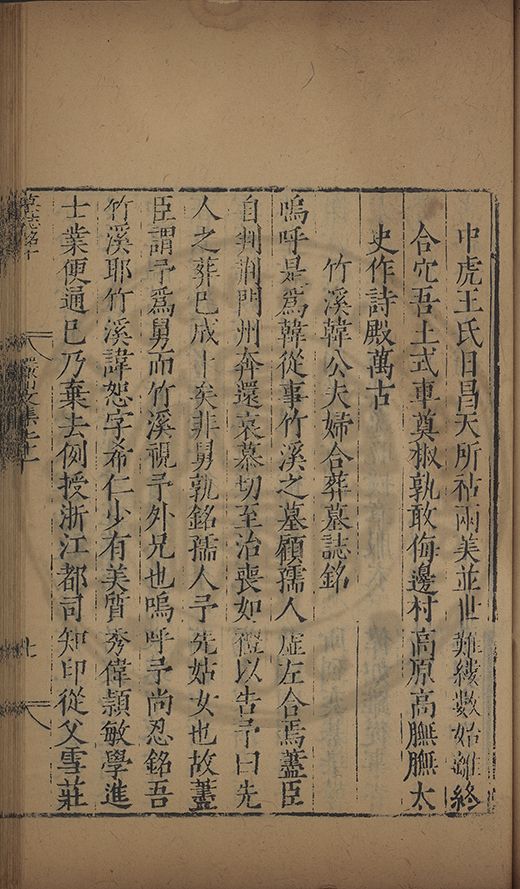 中虎王氏日昌天所祐兩美並世難緩數始雖終
合穴吾上式車奠椒孰敢侮邊村高原高膴膴太
史作詩殿萬古
竹溪韓公夫婦合葬墓誌銘
嗚呼是爲韓從事竹溪之墓顧孺人虛左合焉藎臣
自判荊門州奔還哀慕切至治喪如禮以告予曰先
人之葬巳成十矣非舅孰銘孺人予先姑女也故藎
臣謂予爲舅而竹溪視予外兄也嗚呼予尚忍銘吾
竹溪耶竹溪諱恕字希仁少有美質秀偉頴敏學進
士業便通巳乃棄去例授浙江都司知印從父雪莊